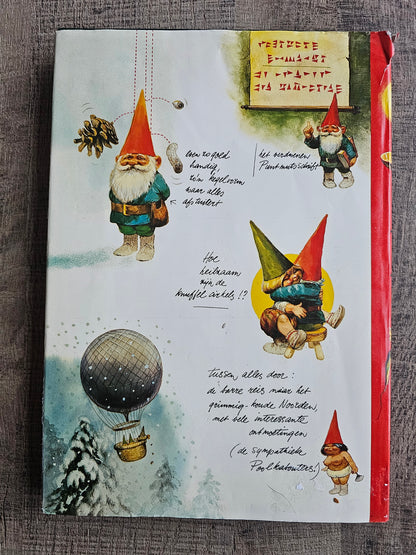 even zo goed
handig,
zo'n kegelvorm
waar alles
afzwiert
het verdwenen
Puntmuts-schrift
Hoe
heilzaam
zijn de
knuffel cirkels!?
tussen alles door:
de barre reis naar het
grimmig-koude Noorden,
met vele interessante
ontmoetingen
(de sympathieke
Poolkabouters!)